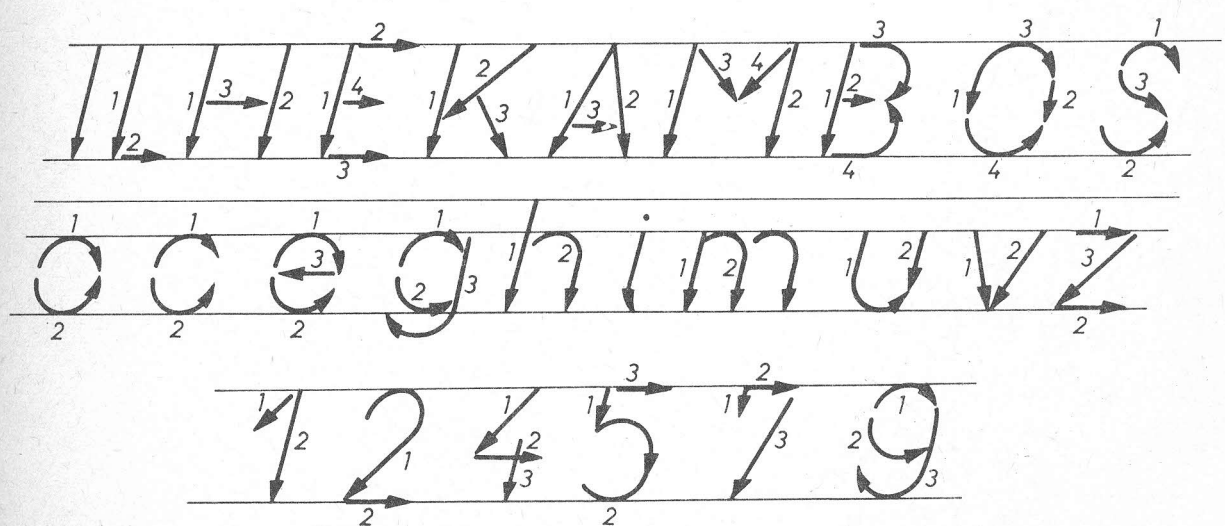 I L H E K A M B O S
o c e g h i m u v z
1 2 4 5 7 9